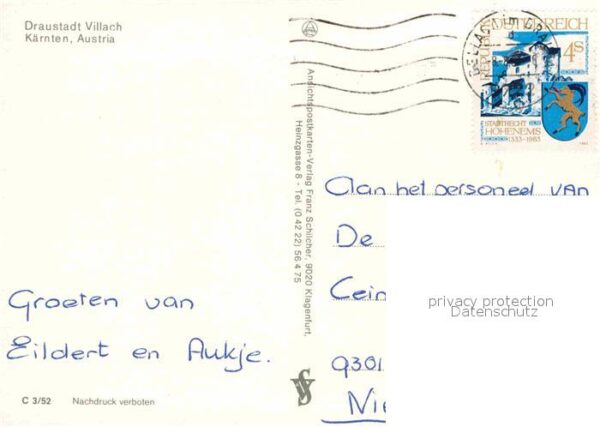 Draustadt Villach
Kärnten, Austria
REPUBLIK ÖSTERREICH
4S
STADTRECHT
HOHENEMS
1333-1983
Ansichtspostkarten-Verlag Franz Schilcher, 9020 Klagenfurt,
Heinzgasse 8 - Tel. (0 42 22) 56 4 75
Aan het personeel van
De
privacy protection
Datenschutz
Groeten van
Eildert en Aukje.
C 3/52 Nachdruck verboten